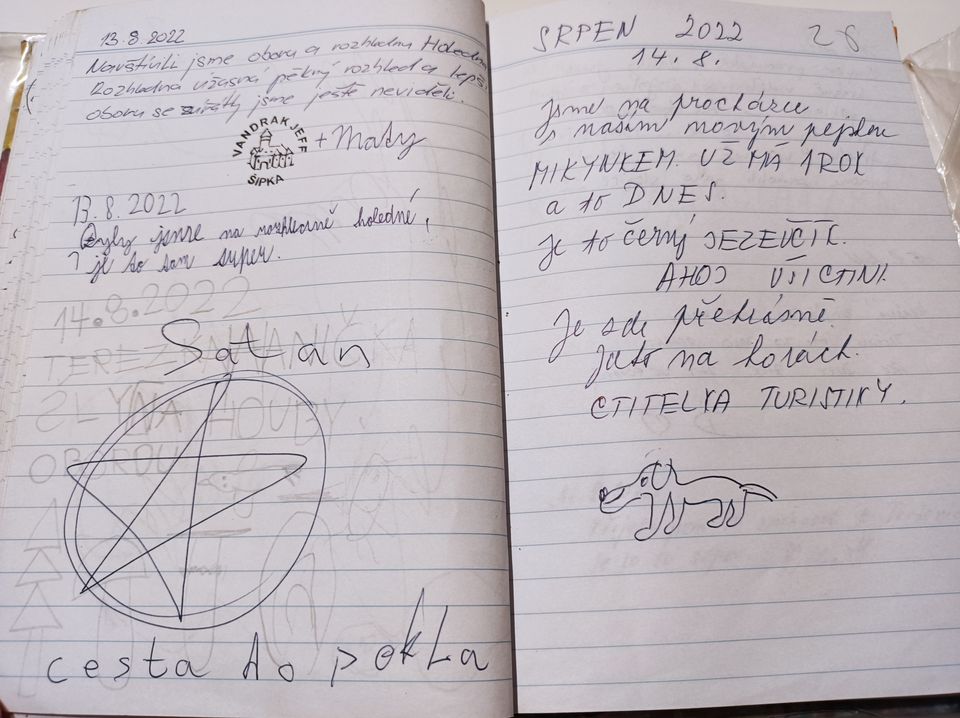 13.8.2022
Navštívili jsme oboru a rozhlednu Holedn
Rozhledna úžasná pěkný rozhled a lepší
oboru se zvířátky jsme ještě neviděli.
VANDRAK JEFF
ŠIPKA
+ Maty
13.8.2022
Byly jsme na rozhledně holedné,
je to tam super.
14.8.2022
Satan
cesta do pekla
SRPEN 2022 28
14.8.
Jsme na procházce
s naším novým pejskem
MIKYNKEM. UŽ MÁ 1 ROK
a to DNES.
Je to černý JEZEVČÍK.
AHOJ VŠICHNI.
Je zde překrásně
jako na horách.
CTITELKA TURISTIKY.